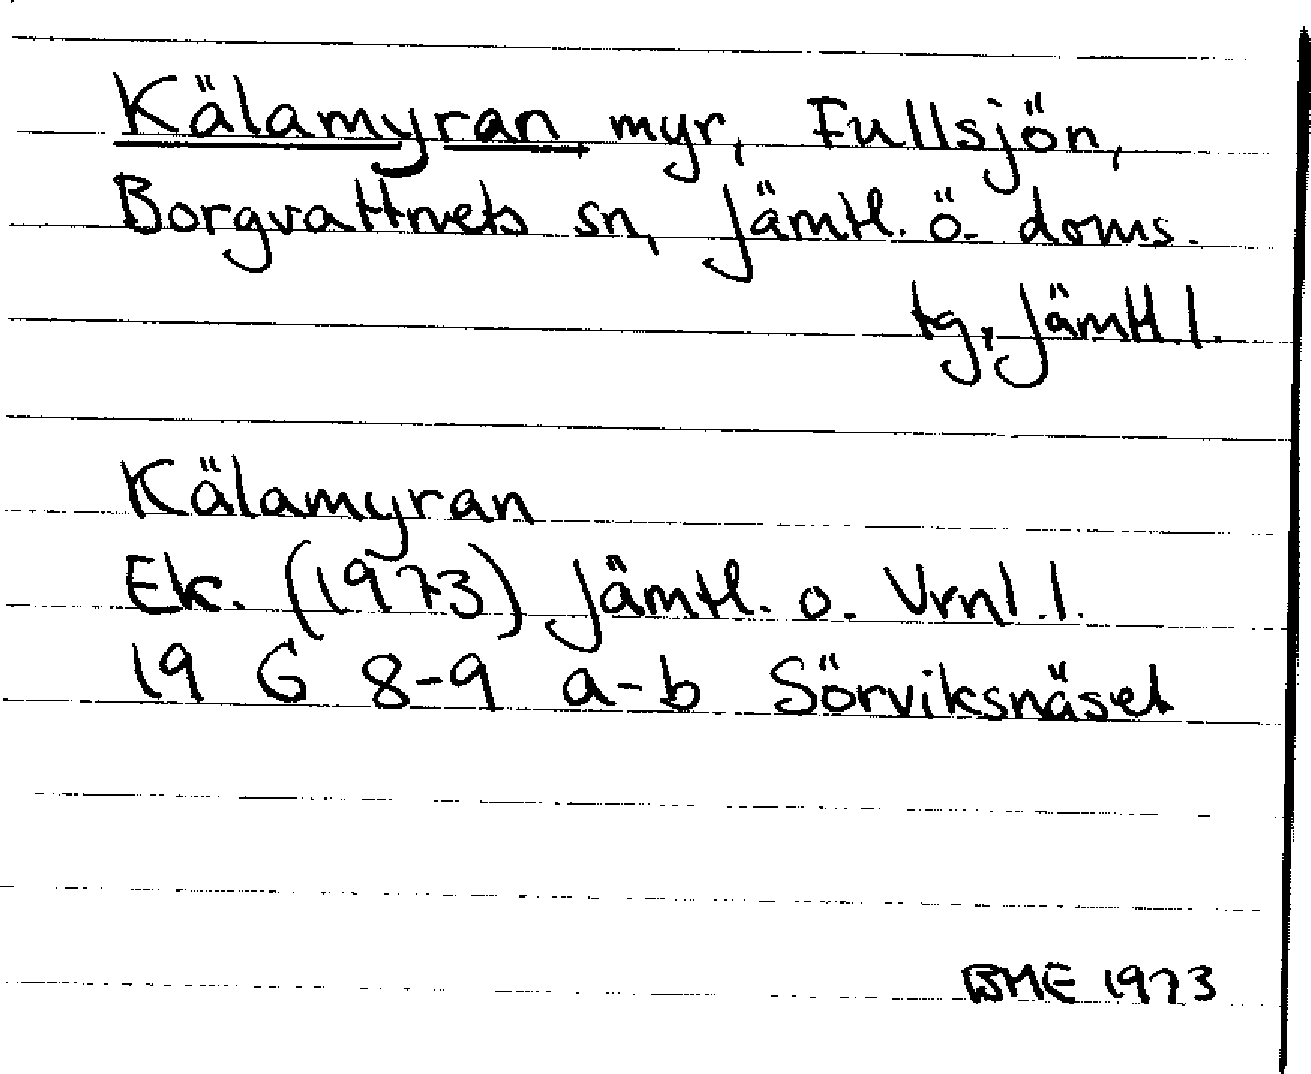 Kälamyran myr, Fullsjön,
Borgvattnets sn, Jämtl. ö. doms.
tg, Jämtl l.
Kälamyran
Ek. (1973) Jämtl. o. Vrnl.l.
19 G 8-9 a-b Sörviksnäset
BME 1973